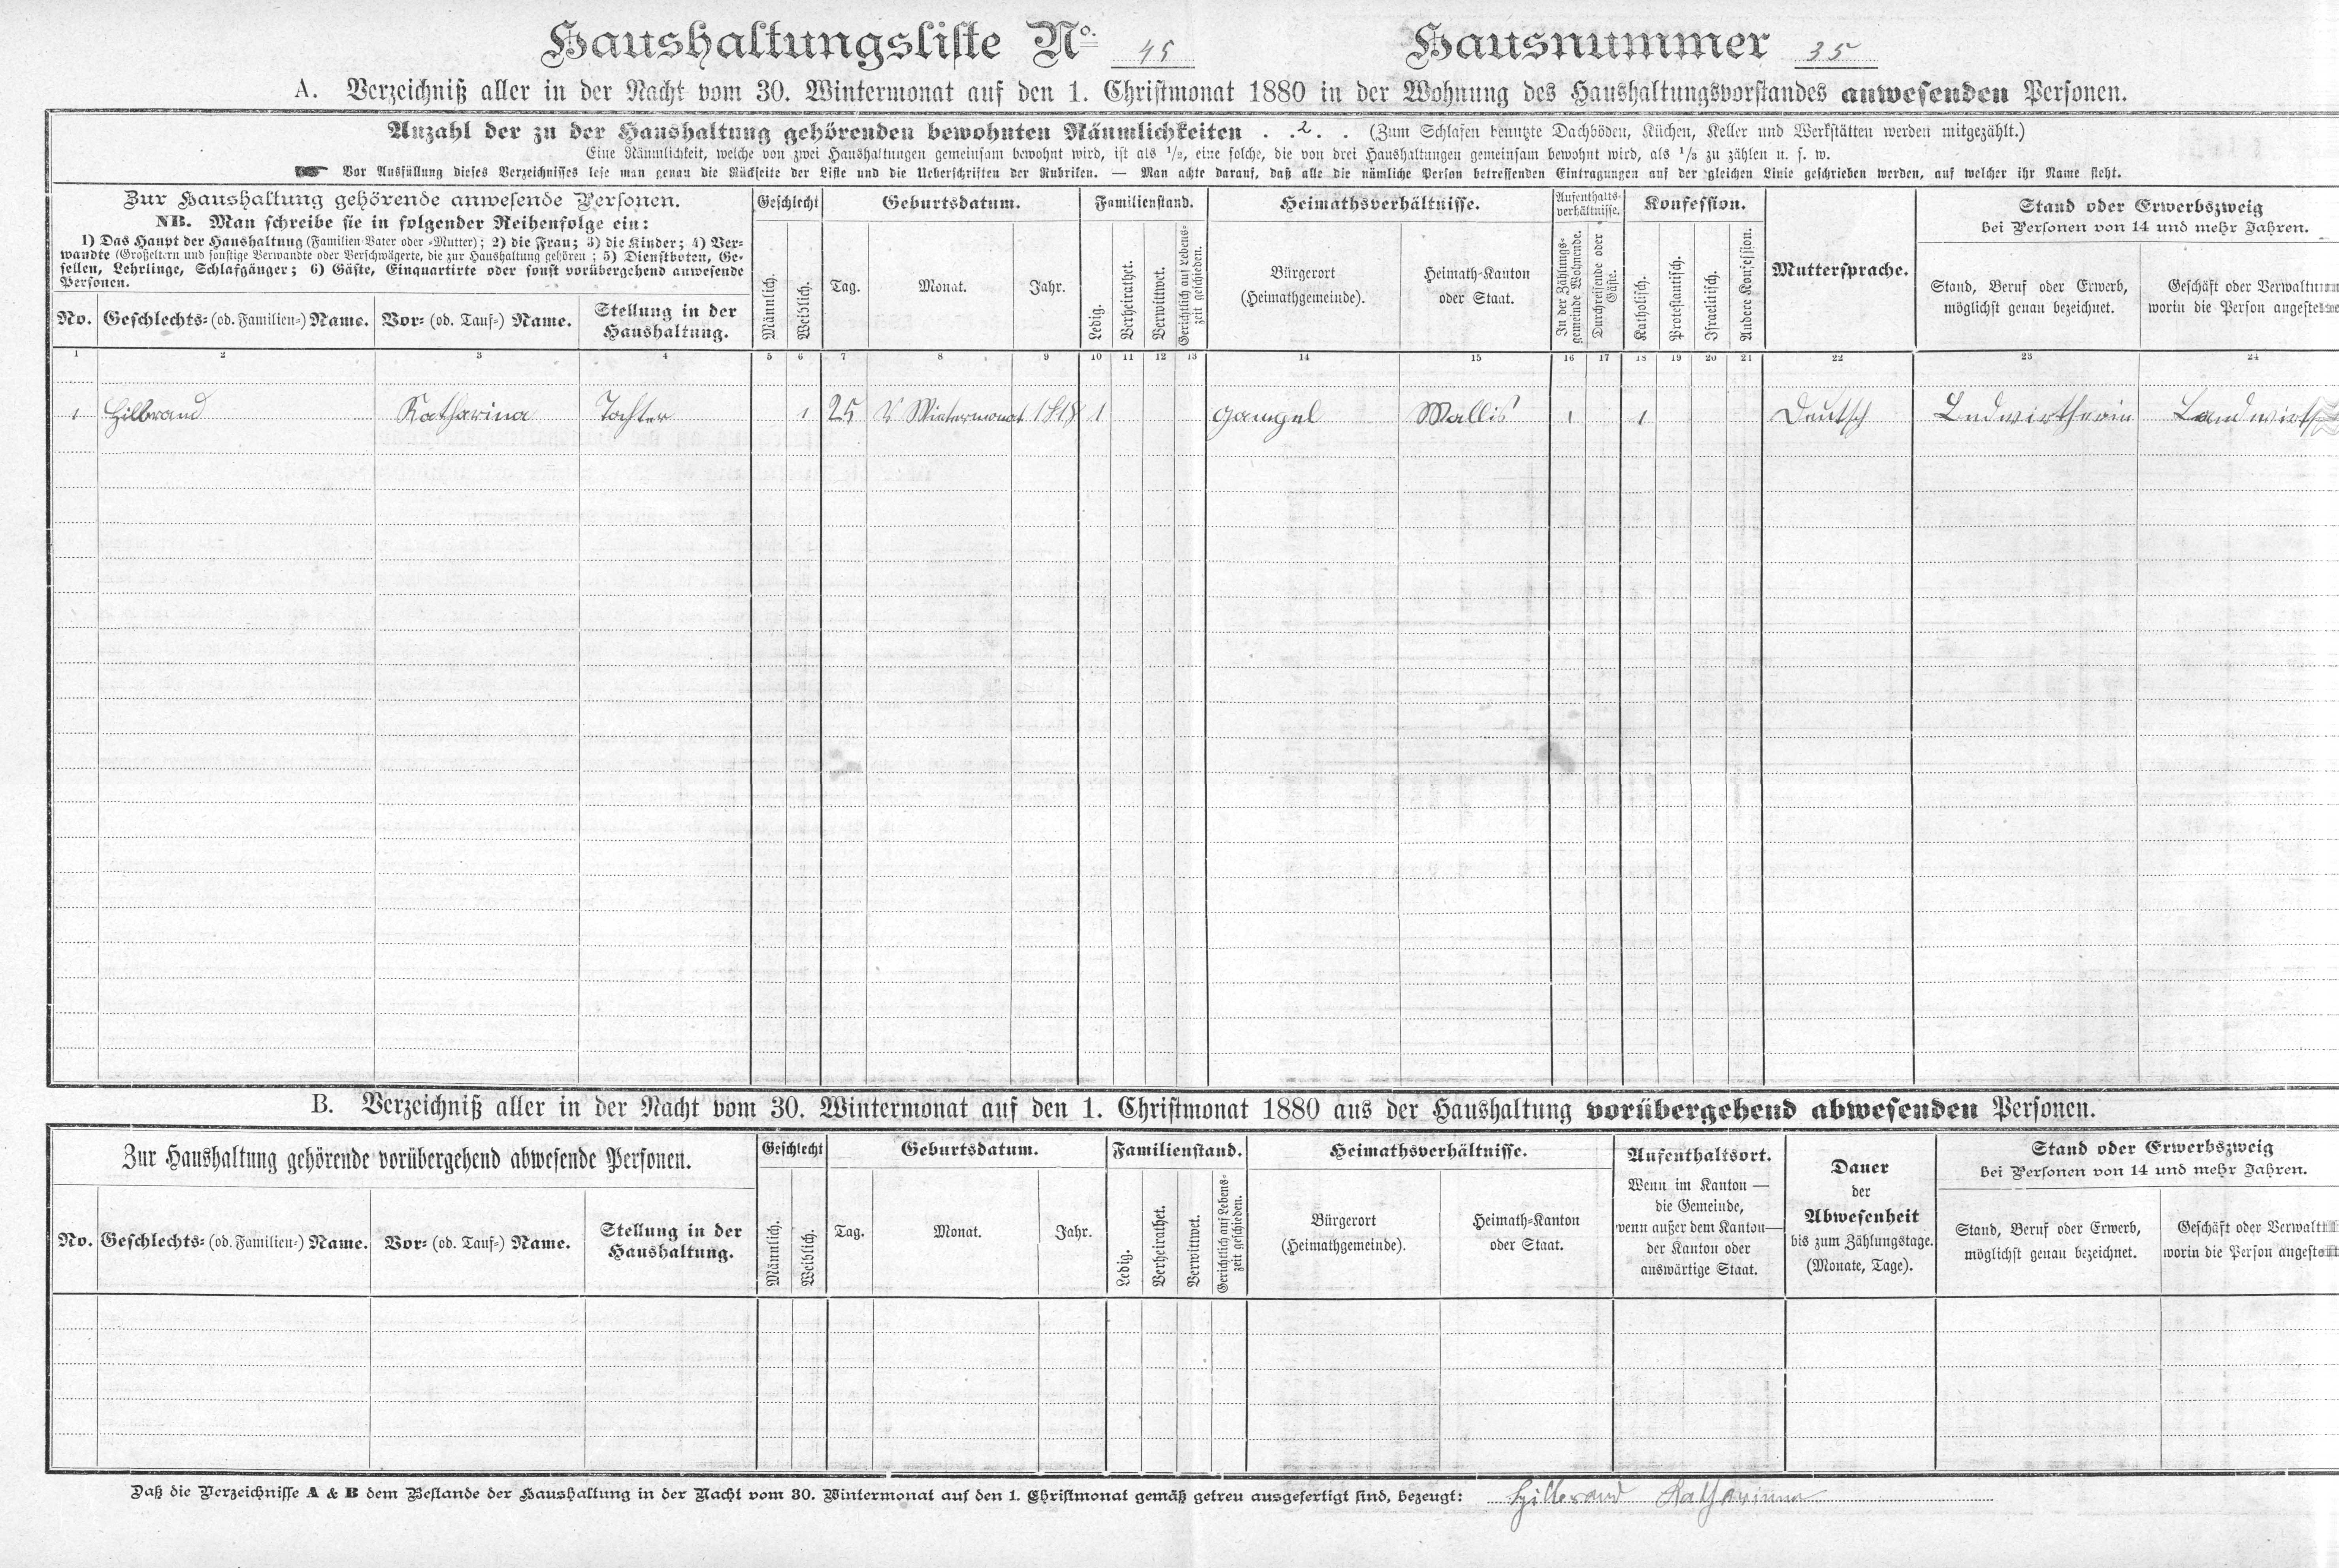 Haushaltungsliste No. 45 Hausnummer 35
A. Verzeichniß aller in der Nacht vom 30. Wintermonat auf den 1. Christmonat 1880 in der Wohnung des Haushaltungsvorstandes anwesenden Personen.
Anzahl der zu der Haushaltung gehörenden bewohnten Räumlichkeiten . . 2 . . (Zum Schlafen benutzte Dachböden, Küchen, Keller und Werkstätten werden mitgezählt.)
Eine Räumlichkeit, welche von zwei Haushaltungen gemeinsam bewohnt wird, ist als 1/2, eine solche, die von drei Haushaltungen gemeinsam bewohnt wird, als 1/3 zu zählen u. s. w.
☛ Vor Ausfüllung dieses Verzeichnisses lese man genau die Rückseite der Liste und die Ueberschriften der Rubriken. — Man achte darauf, daß alle die nämliche Person betreffenden Eintragungen auf der gleichen Linie geschrieben werden, auf welcher ihr Name steht.
Zur Haushaltung gehörende anwesende Personen.
NB. Man schreibe sie in folgender Reihenfolge ein:
1) Das Haupt der Haushaltung (Familien-Vater oder -Mutter); 2) die Frau; 3) die Kinder; 4) Ver-
wandte (Großeltern und sonstige Verwandte oder Verschwägerte, die zur Haushaltung gehören); 5) Dienstboten, Ge-
sellen, Lehrlinge, Schlafgänger; 6) Gäste, Einquartirte oder sonst vorübergehend anwesende
Personen.
No. Geschlechts- (od. Familien-) Name. Vor- (od. Tauf-) Name. Stellung in der
Haushaltung.
Geschlecht
Männlich. Weiblich.
Geburtsdatum.
Tag. Monat. Jahr.
Familienstand.
Ledig. Verheirathet. Verwittwet. Gerichtlich auf Lebens-
zeit geschieden.
Heimathsverhältnisse.
Bürgerort
(Heimathgemeinde).
Heimath-Kanton
oder Staat.
Aufenthalts-
verhältnisse.
In der Zählungs-
gemeinde Wohnende.
Durchreisende oder
Gäste.
Konfession.
Katholisch. Protestantisch. Israelitisch. Andere Konfession.
Muttersprache.
Stand oder Erwerbszweig
bei Personen von 14 und mehr Jahren.
Stand, Beruf oder Erwerb,
möglichst genau bezeichnet.
Geschäft oder Verwaltun
worin die Person angeste
1 2 3 4 5 6 7 8 9 10 11 12 13 14 15 16 17 18 19 20 21 22 23 24
1 Hilbrand Katharina Tochter 1 25 Wintermonat 1818 1 Gampel Wallis 1 1 Deutsch Ledwirtherin Landwirth
B. Verzeichniß aller in der Nacht vom 30. Wintermonat auf den 1. Christmonat 1880 aus der Haushaltung vorübergehend abwesenden Personen.
Zur Haushaltung gehörende vorübergehend abwesende Personen.
No. Geschlechts- (od. Familien-) Name. Vor- (od. Tauf-) Name. Stellung in der
Haushaltung.
Geschlecht
Männlich. Weiblich.
Geburtsdatum.
Tag. Monat. Jahr.
Familienstand.
Ledig. Verheirathet. Verwittwet. Gerichtlich auf Lebens-
zeit geschieden.
Heimathsverhältnisse.
Bürgerort
(Heimathgemeinde).
Heimath-Kanton
oder Staat.
Aufenthaltsort.
Wenn im Kanton —
die Gemeinde,
wenn außer dem Kanton —
der Kanton oder
auswärtige Staat.
Dauer
der
Abwesenheit
bis zum Zählungstage.
(Monate, Tage).
Stand oder Erwerbszweig
bei Personen von 14 und mehr Jahren.
Stand, Beruf oder Erwerb,
möglichst genau bezeichnet.
Geschäft oder Verwalt
worin die Person angeste
Daß die Verzeichnisse A & B dem Bestande der Haushaltung in der Nacht vom 30. Wintermonat auf den 1. Christmonat gemäß getreu ausgefertigt sind, bezeugt: Hillbrand Katharinna